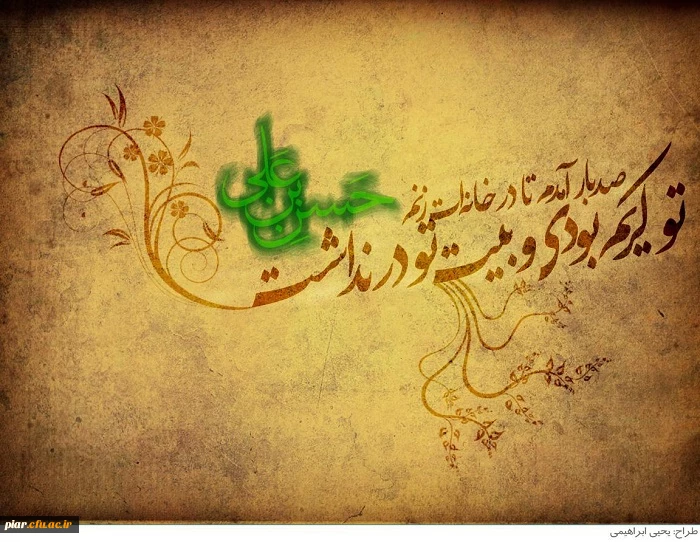 صدبار آمدم تا در خانه‌ات زنم
تو کریم بودی و بیت تو در نداشت
حسن بن علی
piar.cfu.ac.ir
طراح: یحیی ابراهیمی